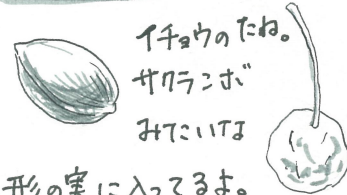 イチョウのたね。
サクランボ
みたいな
形の実に入ってるよ。